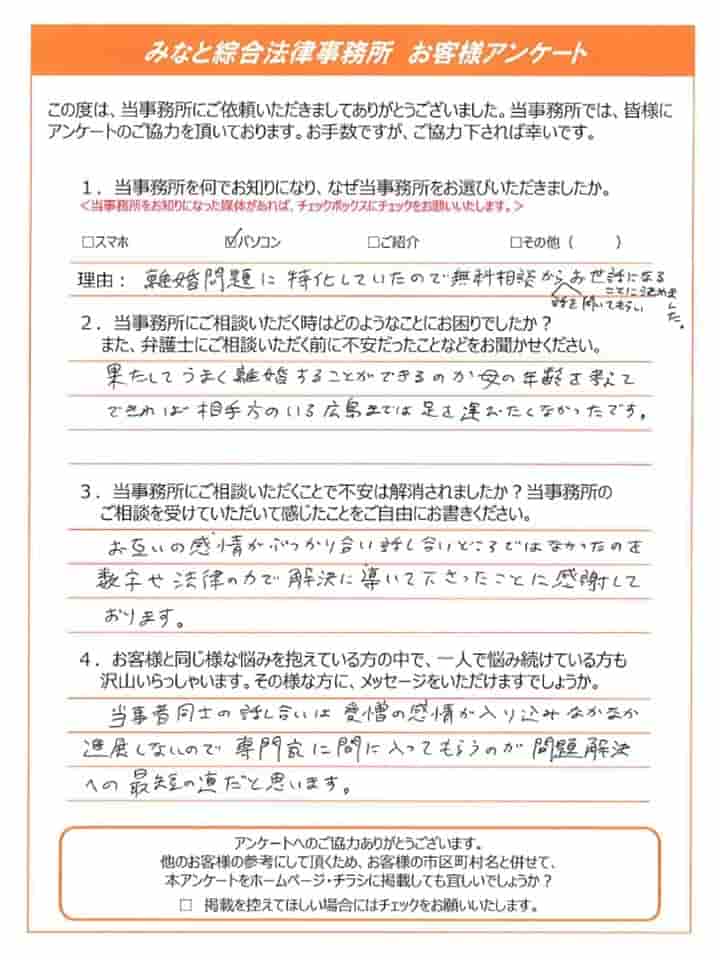 みなと綜合法律事務所 お客様アンケート
この度は、当事務所にご依頼いただきましてありがとうございました。当事務所では、皆様に
アンケートのご協力を頂いております。お手数ですが、ご協力下されば幸いです。
1．当事務所を何でお知りになり、なぜ当事務所をお選びいただきましたか。
＜当事務所をお知りになった媒体があれば、チェックボックスにチェックをお願いいたします。＞
□スマホ ☑パソコン □ご紹介 □その他（ ）
理由：離婚問題に特化していたので無料相談からお世話になる
ことに決めました。
話を聞いてもらい
2．当事務所にご相談いただく時はどのようなことにお困りでしたか？
また、弁護士にご相談いただく前に不安だったことなどをお聞かせください。
果たしてうまく離婚することができるのか母の年齢を考えて
できれば相手方のいる広島までは足を運びたくなかったです。
3．当事務所にご相談いただくことで不安は解消されましたか？当事務所の
ご相談を受けていただいて感じたことをご自由にお書きください。
お互いの感情がぶつかり合い話し合いどころではなかったのを
数字や法律の力で解決に導いて下さったことに感謝して
おります。
4．お客様と同じ様な悩みを抱えている方の中で、一人で悩み続けている方も
沢山いらっしゃいます。その様な方に、メッセージをいただけますでしょうか。
当事者同士の話し合いは愛憎の感情が入り込みなかなか
進展しないので専門家に間に入ってもらうのが問題解決
への最短の道だと思います。
アンケートへのご協力ありがとうございます。
他のお客様の参考にして頂くため、お客様の市区町村名と併せて、
本アンケートをホームページ・チラシに掲載しても宜しいでしょうか？
□ 掲載を控えてほしい場合にはチェックをお願いいたします。